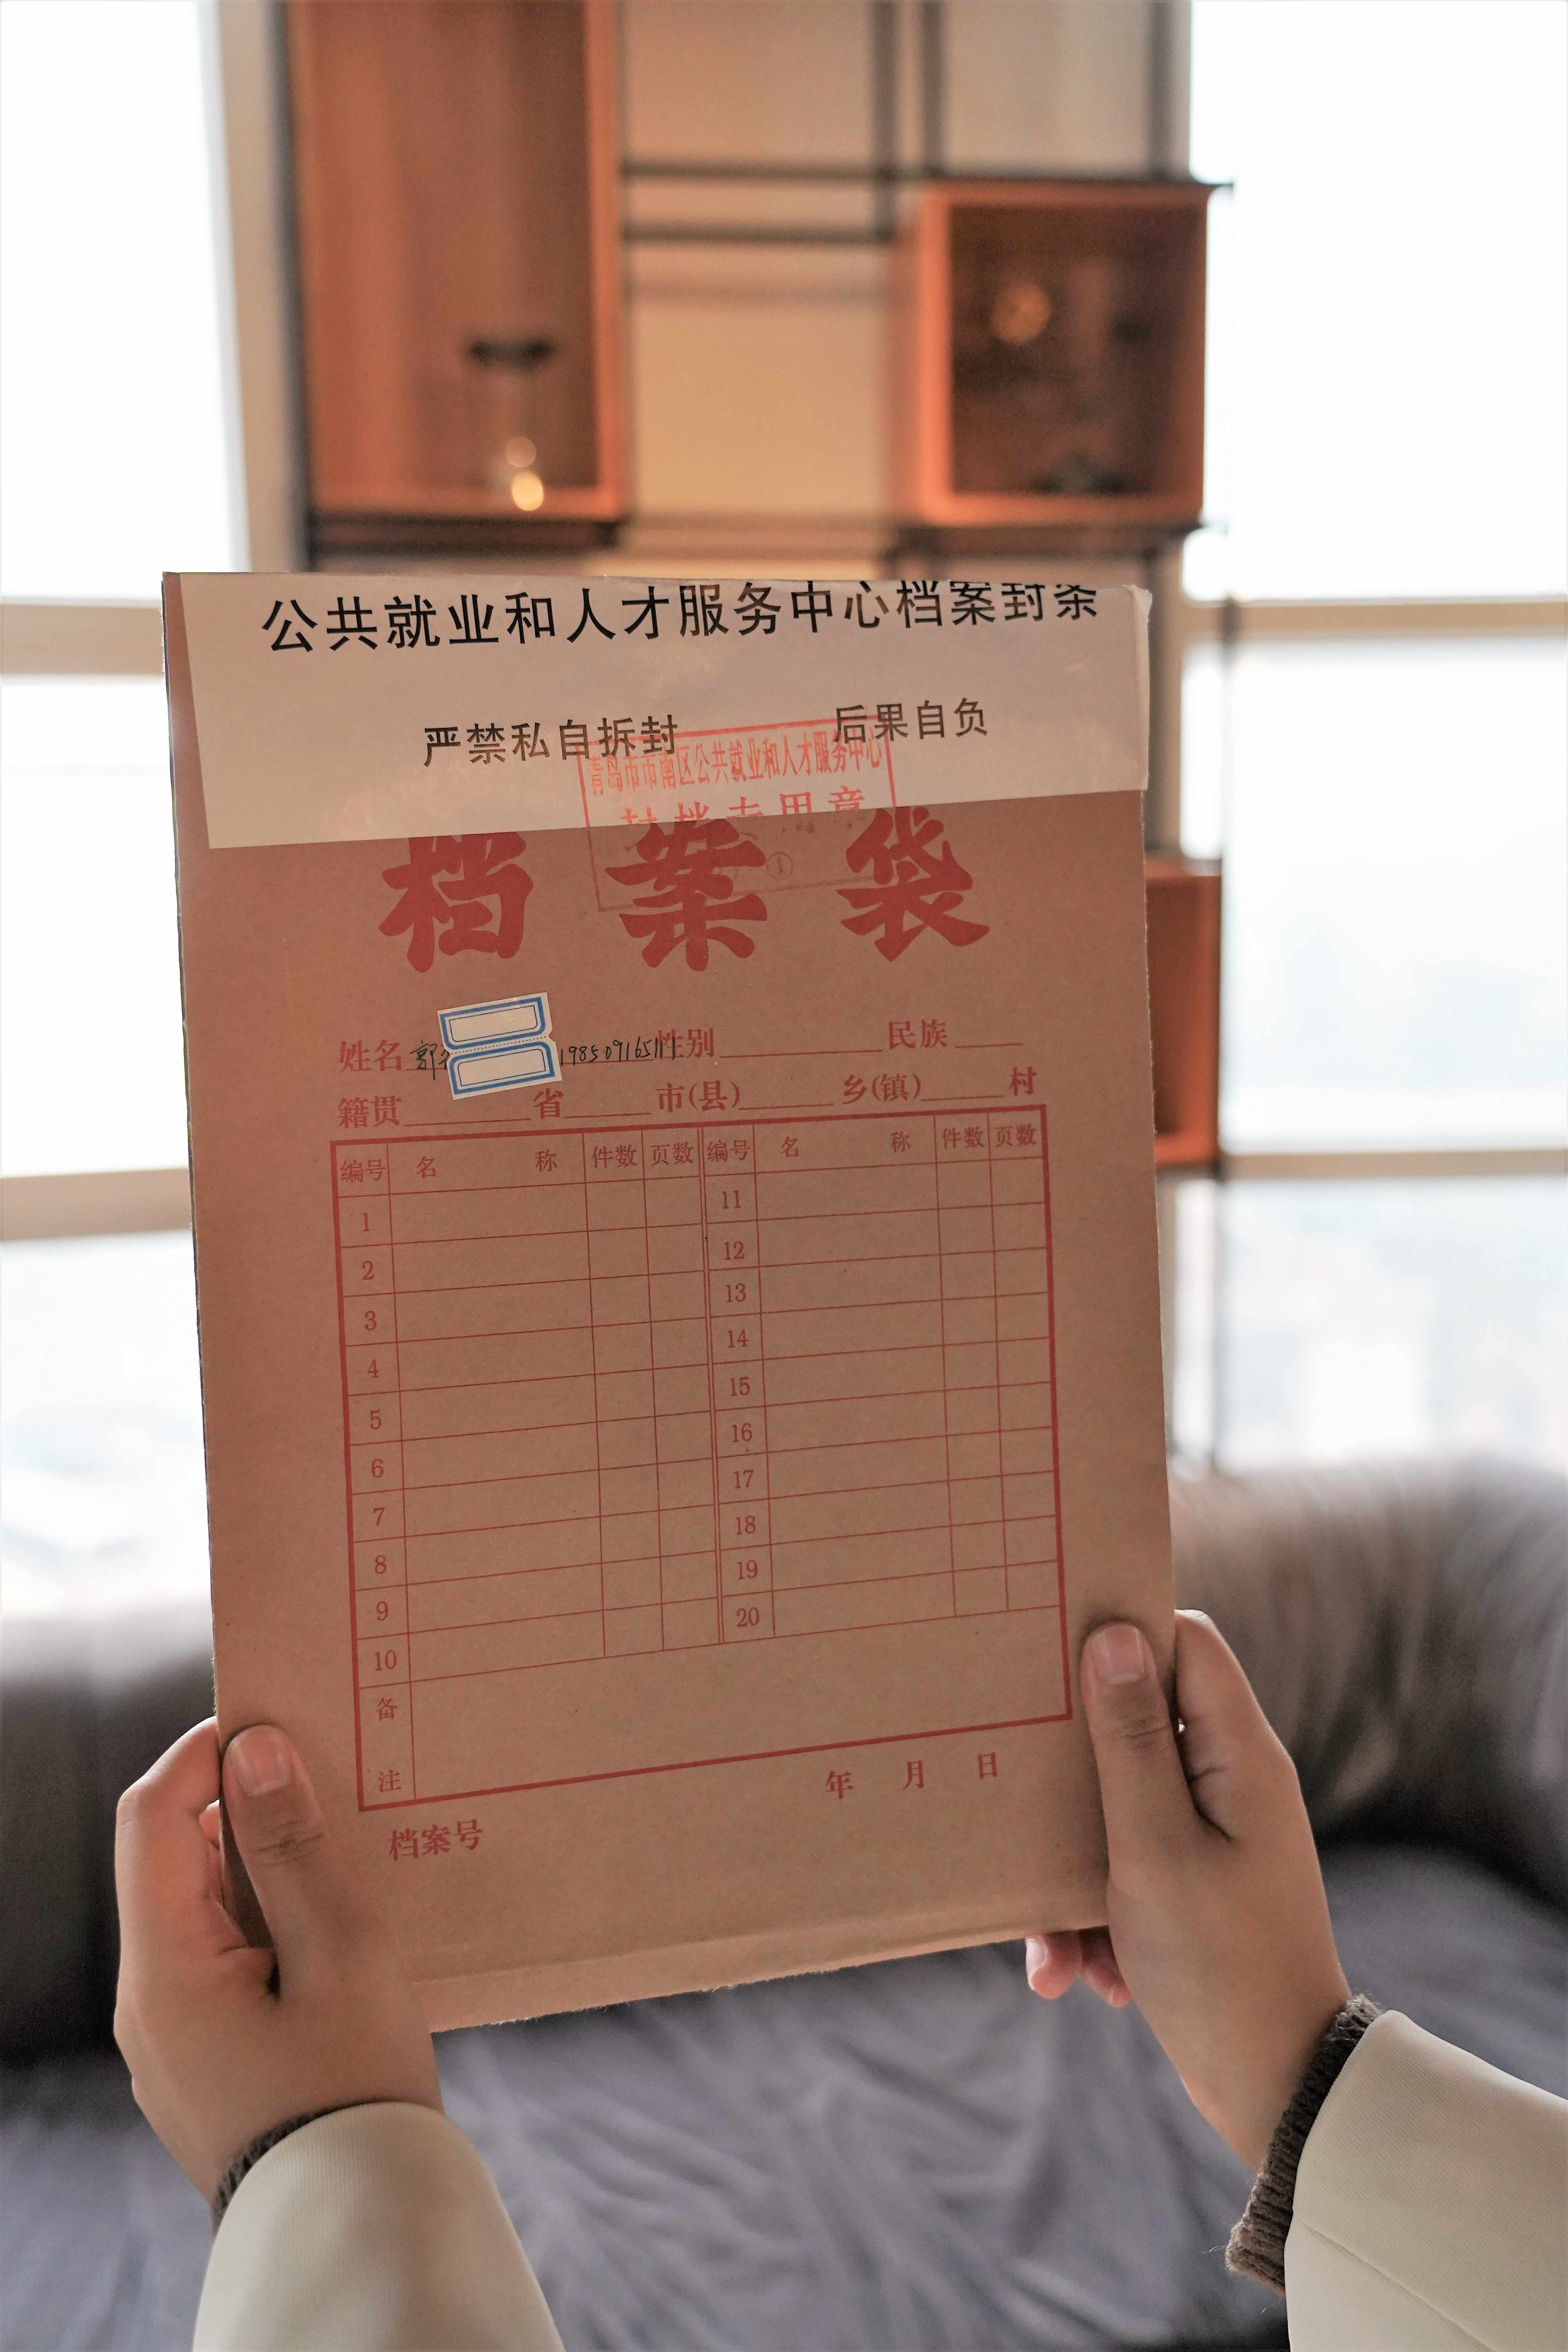 公共就业和人才服务中心档案封条
严禁私自拆封 后果自负
青岛市市南区公共就业和人才服务中心
封档专用章
档案袋
姓名 郭 198509165111 性别 民族
籍贯 省 市(县) 乡(镇) 村
编号 名称 件数 页数 编号 名称 件数 页数
1 11
2 12
3 13
4 14
5 15
6 16
7 17
8 18
9 19
10 20
备注
年 月 日
档案号